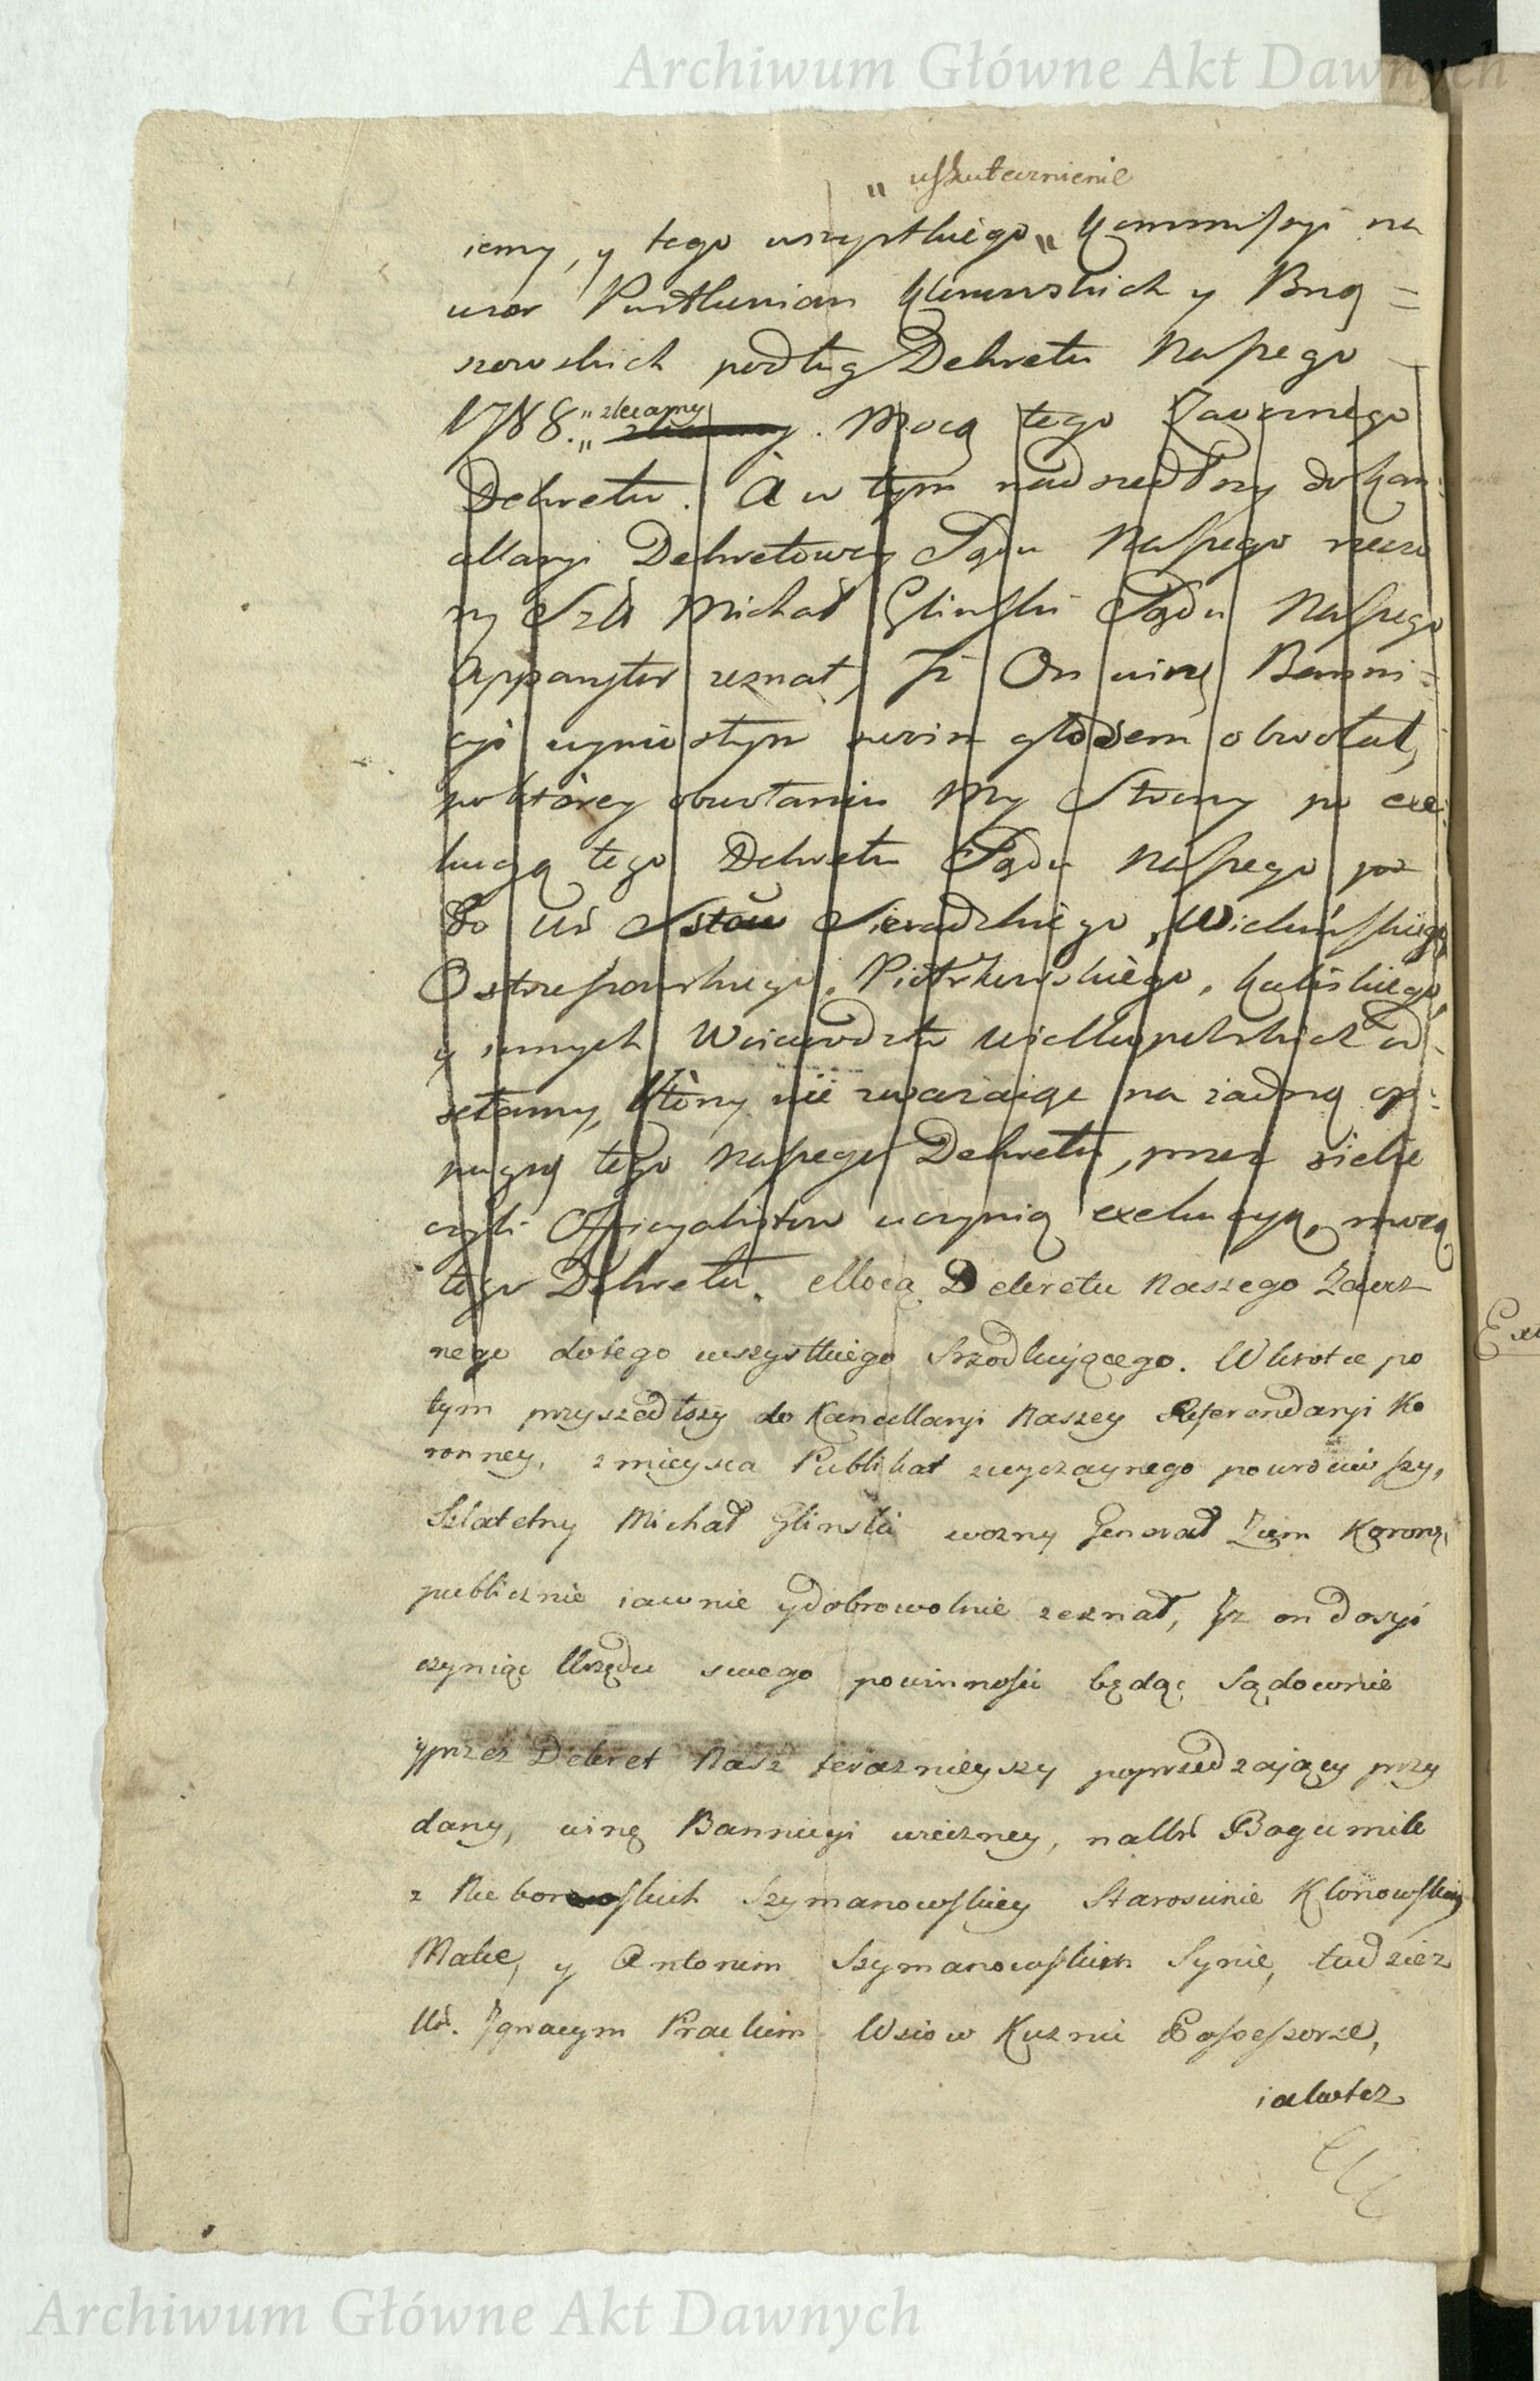 Archiwum Główne Akt Dawnych
„ uskutecznienie
iemy, y tego wszystkiego „ Kommissyi na
wzor Pustkunian Klonowskich y Brą=
szewskich podług Dekretu Naszego
1788. „ zlecamy „ . Mocą tego Zaocznego
Dekretu. A w tym nadszedłszy do Kan=
cellaryi Dekretowey Sądu Naszego rzeczo
ny Szl. Michał Glinski Sądu Naszego
Apparytor zeznał, Iż On winę Banni=
cyi wyniosłym swoim głosem obwołał,
po ktorey obwołaniu My Strony po exe=
kucyą tego Dekretu Sądu Naszego
do Ur Sstów Sieradzkiego, Wieluńskiego,
Ostrzeszowskiego, Piotrkowskiego, Kaliskiego,
y innych Woiewodztw Wielkopolskich od=
sełamy, Ktòrzy nie zwazaiąc na zadną op=
pugną tego Naszego Dekretu, przez siebie
czyli Officyalistow uczynią exekucyą, mocą
tego Dekretu. Mocą Dekretu Naszego Zaocz
nego do tego wszystkiego srzodkuiącego. Wkrotce po
tym przyszedłszy do Kancellaryi Naszey Referendaryi Ko
ronney, z mieysca Publikat zwyczaynego powrociwszy,
Szlatetny Michał Glinski wozny Generał Ziem Koron:
publicznie iawnie y dobrowolnie zeznał, Iz on dosyć
czyniąc Urzędu swego powinności będąc Sądownie
y przez Dekret Nasz terazniejszy poprzedzający przy
dany, winę Bannicyi wieczney, na Ur Bogumile
z Nieborowskich Szymanowskiey Starościnie Klonowskiey
Matce, y Antonim Szymanowskim Synie, tudziez
Ur. Ignacym Prackim Wsiow Kuznic Possessorze,
iako tez
Archiwum Główne Akt Dawnych